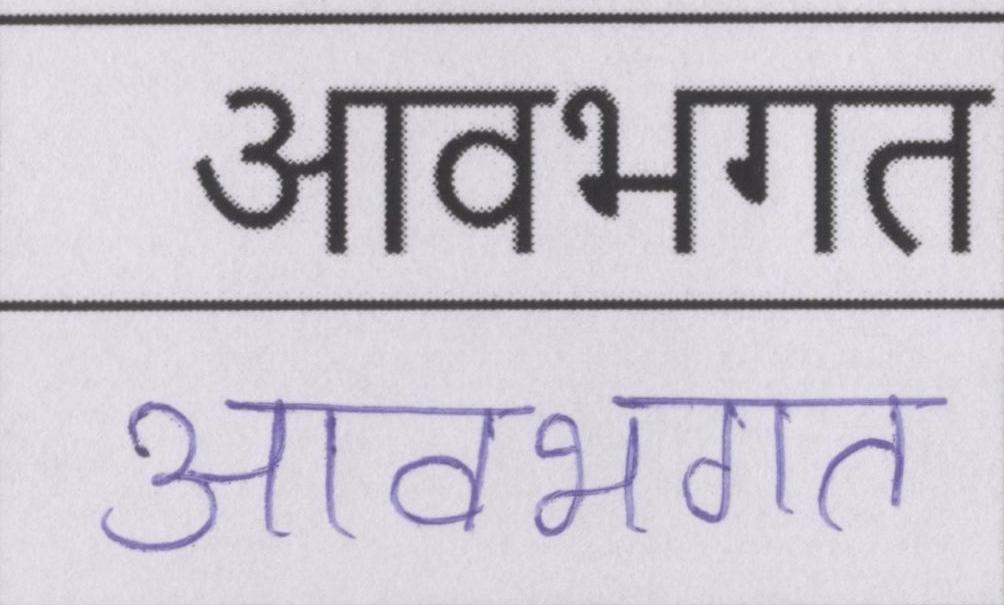 आवभगत
आवभगत